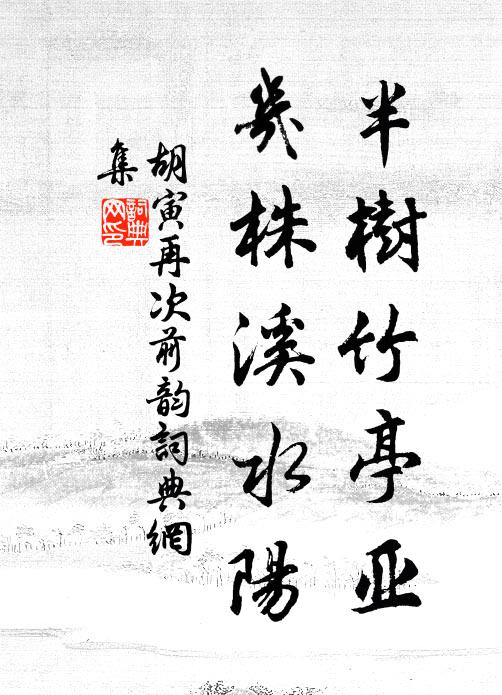 半樹竹亭亚
幾株溪水陽
胡寅再次前韵詞典網
集
詞典網印